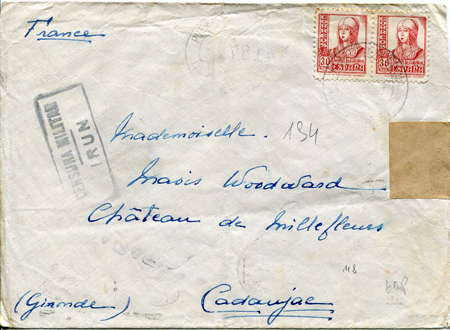 France
30 30
ESPAÑA ESPAÑA
CENSURA MILITAR
IRUN
Mademoiselle. 194
Mavis Woodward
Château de Millefleurs
118
(Gironde) Cadaujac